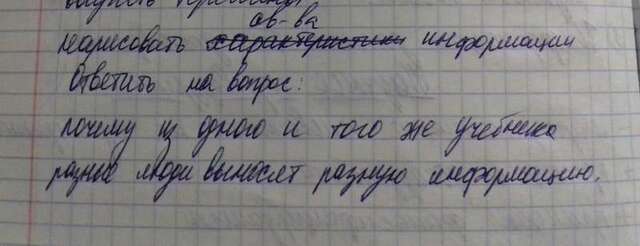 св-ва
нарисовать характеристики информации
Ответить на вопрос:
почему из одного и того же учебника
разные люди выносят разную информацию.